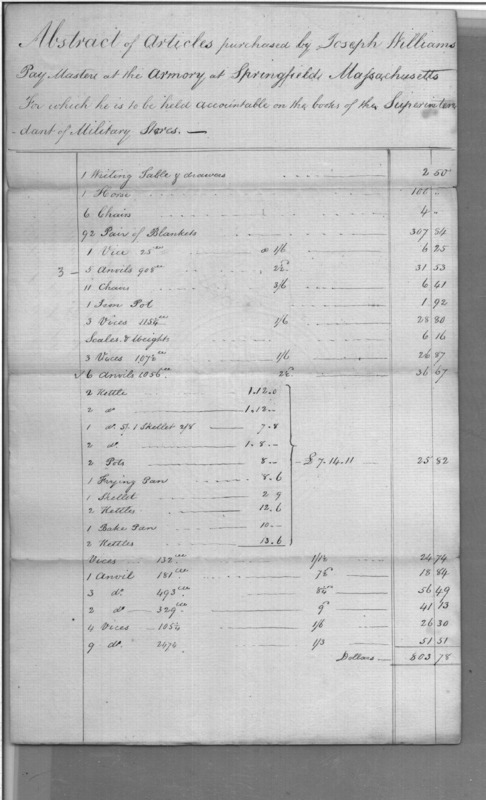 Abstract of Articles purchased by Joseph Williams
Pay Master at the Armory at Springfield, Massachusetts
For which he is to be held accountable on the books of the Superinten
dant of Military Stores. —
1 Writing Table & drawers 2 50
1 Horse 100 "
6 Chairs 4 "
92 Pair of Blankets 307 84
1 Vice 25 a 1/6 6 25
3 — 5 Anvils 908 31 53
11 Chairs 3/6 6 41
1 Iron Pot 1 92
3 Vices 1154 1/6 28 80
Scales & Weights 6 16
3 Vices 1076 1/6 26 87
6 Anvils 1056 36 67
2 Kettle 1.12.0
2 do 1.12 —
1 do 1 Skellet 2/8 7.8
2 do 1.8 —
2 Pots 8 — £7.14.11 — 25 82
1 Frying Pan 8.6
1 Skellet 2 9
2 Kettles 12.6
1 Bake Pan 10 —
2 Kettles 13.6
Vices 132 24 74
1 Anvil 181 18 84
3 do 493 56 49
2 do 329 41 13
4 Vices 1054 1/6 26 30
9 do 2474 1/3 51 51
Dollars — 803 78